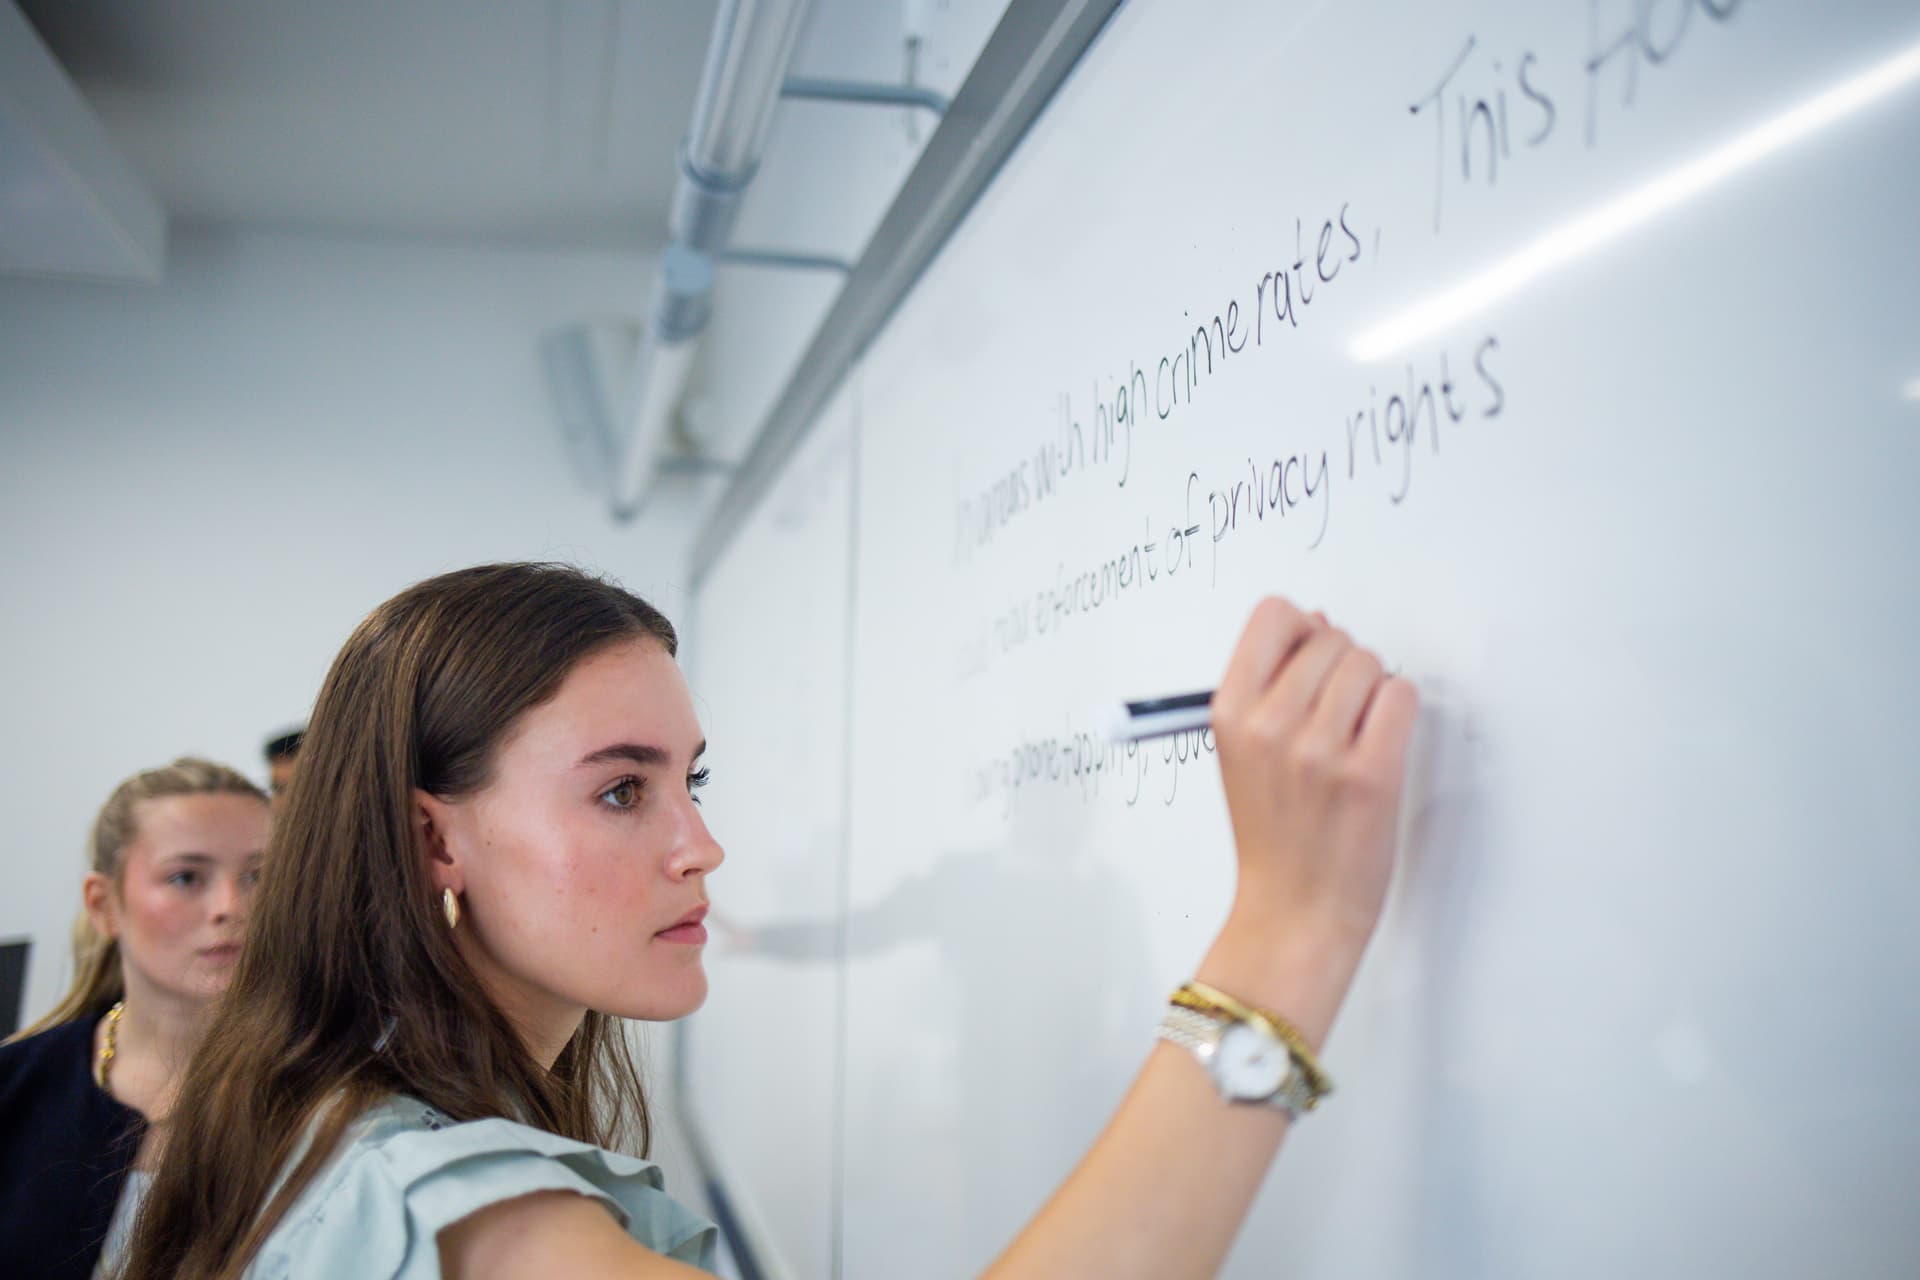 This Ho
In areas with high crime rates,
relax enforcement of privacy rights
phone tapping, gove